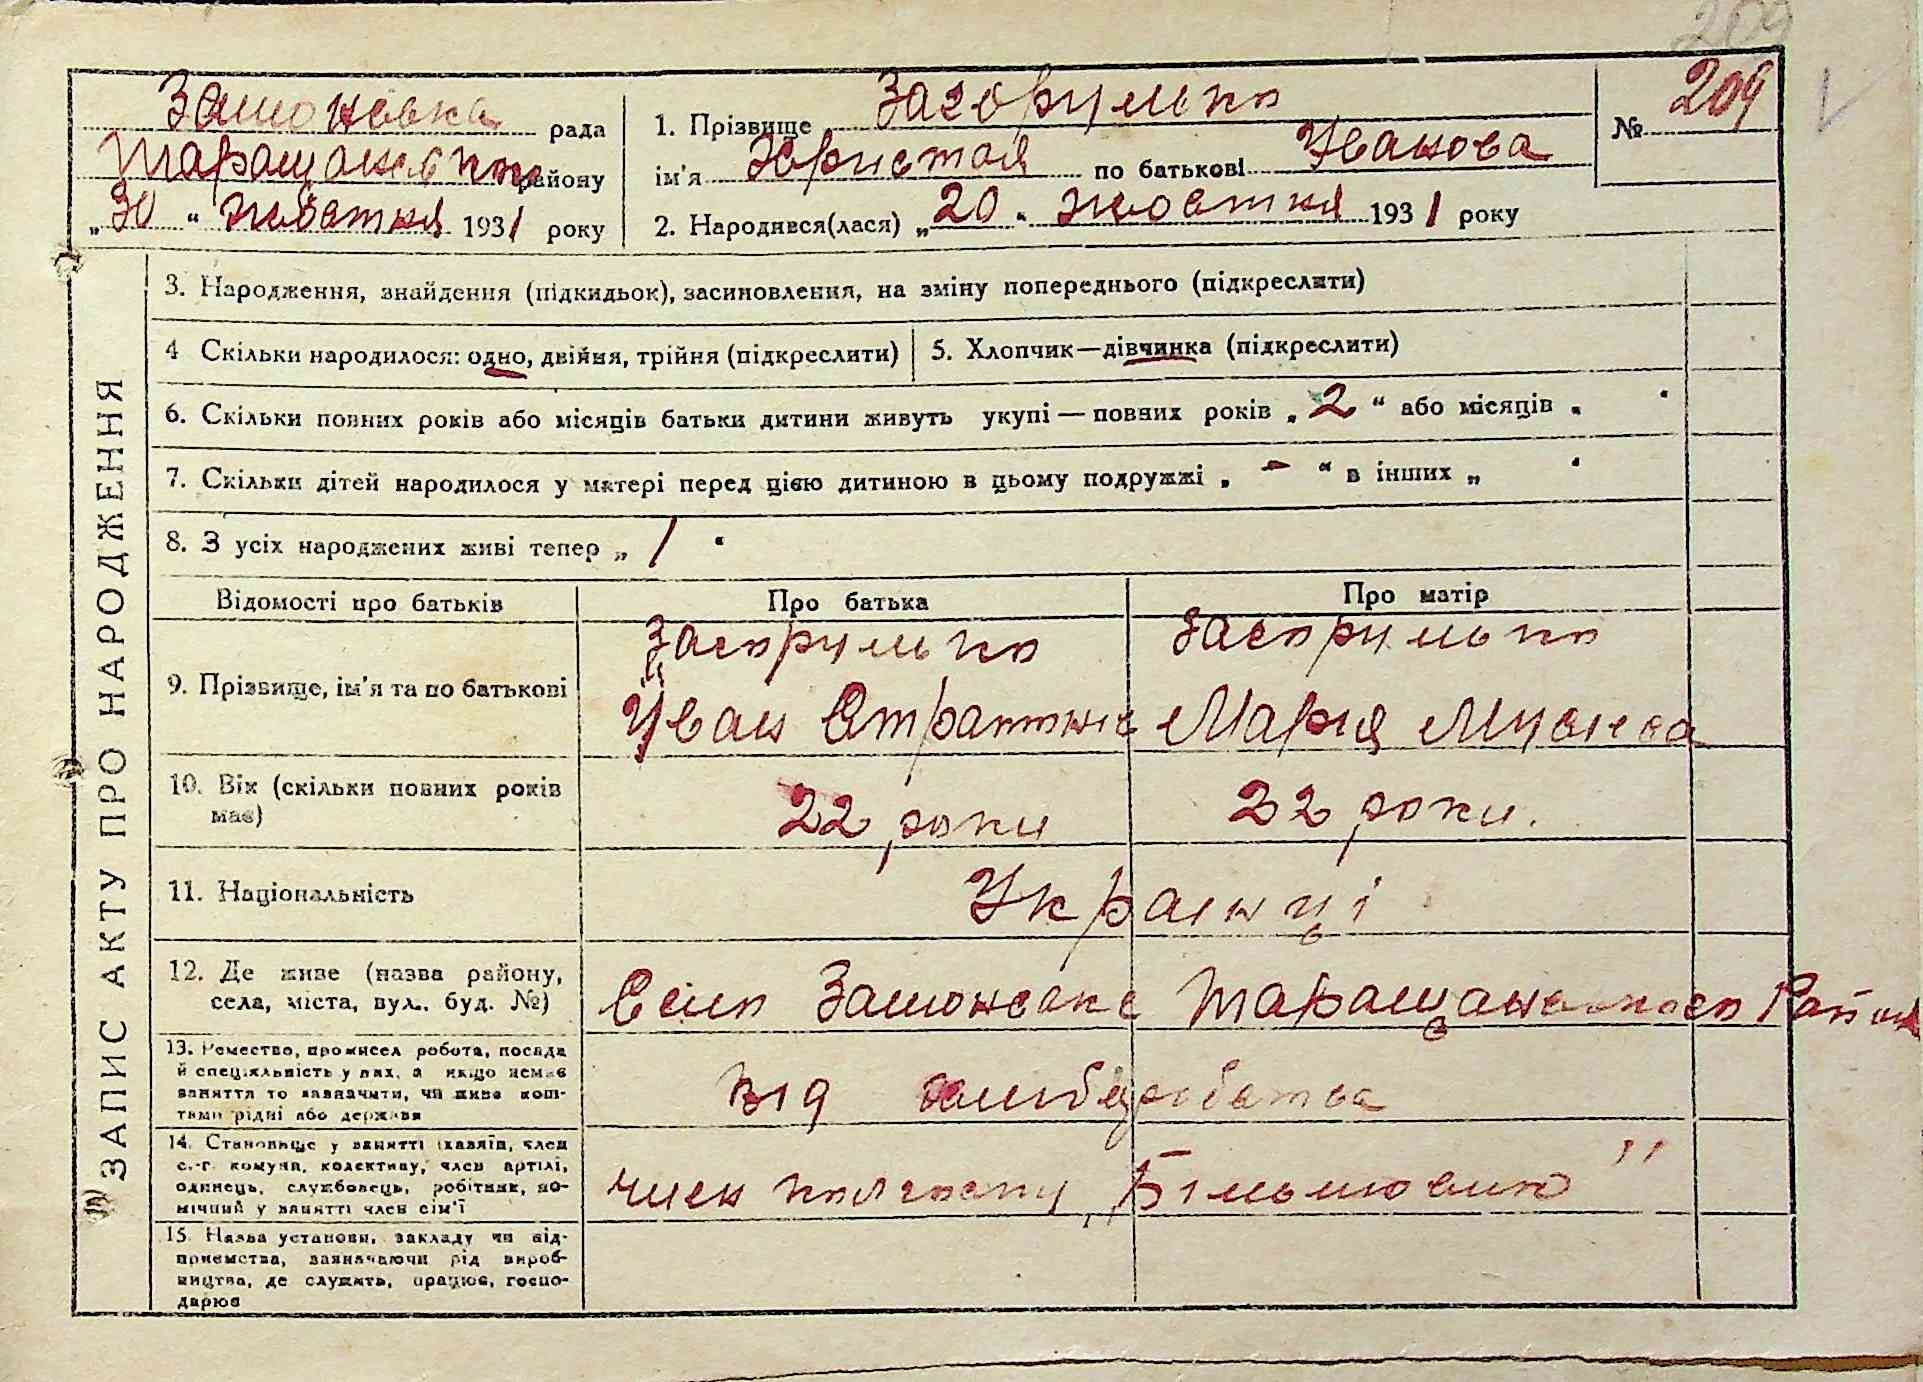 209
Залонівка рада
Таращанськ району
„30“ жовтня 1931 року
1. Прізвище Загорулько
ім'я Христоя по батькові Иванова
2. Народився(лася) „20“ жовтня 1931 року
№ 209
ЗАПИС АКТУ ПРО НАРОДЖЕННЯ
3. Народження, знайдення (підкидьок), засиновлення, на зміну попереднього (підкреслити)
4 Скільки народилося: одно, двійня, трійня (підкреслити)
5. Хлопчик—дівчинка (підкреслити)
6. Скільки повних років або місяців батьки дитини живуть укупі — повних років „2“ або місяців „ “
7. Скільки дітей народилося у матері перед цією дитиною в цьому подружжі „ - “ в інших „ “
8. З усіх народжених живі тепер „1“
Відомості про батьків
Про батька
Про матір
9. Прізвище, ім'я та по батькові
Загорулько
Иван
Загорулько
Мария
10. Вік (скільки повних років
має)
22 роки
22 роки.
11. Національність
Українці
12. Де живе (назва району,
села, міста, вул., буд. №)
Село Таращанського Район
13. Ремество, промисел робота, посада
й спеціяльність у них, а якщо немає
заняття то зазначити, чи живе кош-
тами рідні або держави
від хлібуробства
14. Становище у занятті (хазяїн, член
с.-г. комуни, колективу, член артілі,
одинець, службовець, робітник, по-
мічний у занятті член сім'ї
член колгоспу „Більшовик"
15. Назва установи, закладу чи під-
приємства, зазначаючи рід вироб-
ництва, де служить, працює, госпо-
дарює